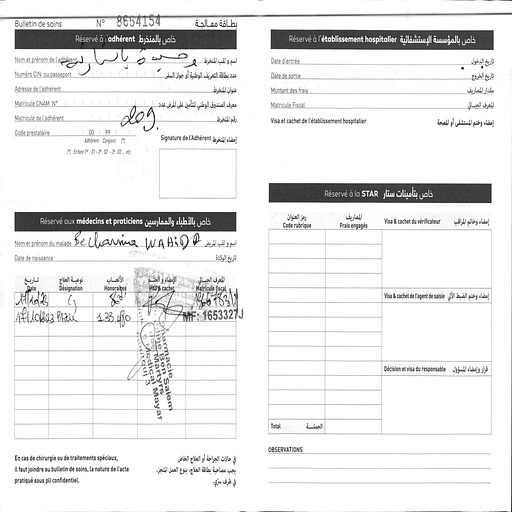 Bulletin de soins N° 8654154 بطاقة معالجة
Réservé à l'adhérent خاص بالمنخرط
Nom et prénom de l'adhérent إسم و لقب المنخرط
Numéro CIN ou passeport عدد بطاقة التعريف الوطنية أو جواز السفر
Adresse de l'adhérent عنوان المنخرط
Matricule CNAM N° معرف الصندوق الوطني للتأمين على المرض عدد
Matricule de l'adhérent رقم المنخرط
Code prestataire 00 99 (*)
Adhérent Conjoint
(*) : Enfant 1er : 01 - 2è : 02 - 3è : 03 ... etc
Signature de l'Adhérent إمضاء المنخرط
Réservé aux médecins et praticiens خاص بالأطباء والممارسين
Nom et prénom du malade WAHIDA إسم و لقب المريض
Date de naissance تاريخ الولادة
تاريخ نوعية العلاج الأتعاب الإمضاء و الختم المعرف الجبائي
Date Désignation Honoraires Visa & cachet Matricule Fiscal
MF: 1653327J
Pharmacie
Ben Salem
Martyrs
Medical Mayar
En cas de chirurgie ou de traitements spéciaux,
il faut joindre au bulletin de soins, la nature de l'acte
pratiqué sous pli confidentiel.
في حالات الجراحة أو العلاج الخاص
يجب مصاحبة بطاقة العلاج، بنوع العمل المنجز،
في ظرف سري.
Réservé à l'établissement hospitalier خاص بالمؤسسة الإستشفائية
Date d'entrée تاريخ الدخول
Date de sortie تاريخ الخروج
Montant des frais مقدار المصاريف
Matricule Fiscal المعرف الجبائي
Visa et cachet de l'établissement hospitalier إمضاء وختم المستشفى أو المصحة
Réservé à la STAR خاص بتأمينات ستار
رمز العنوان المصاريف
Code rubrique Frais engagés
Visa & cachet du vérificateur إمضاء وختم المراقب
Visa & cachet de l'agent de saisie إمضاء وختم الضبط الآلي
Décision et visa du responsable قرار وإمضاء المسؤول
Total الجملة
OBSERVATIONS